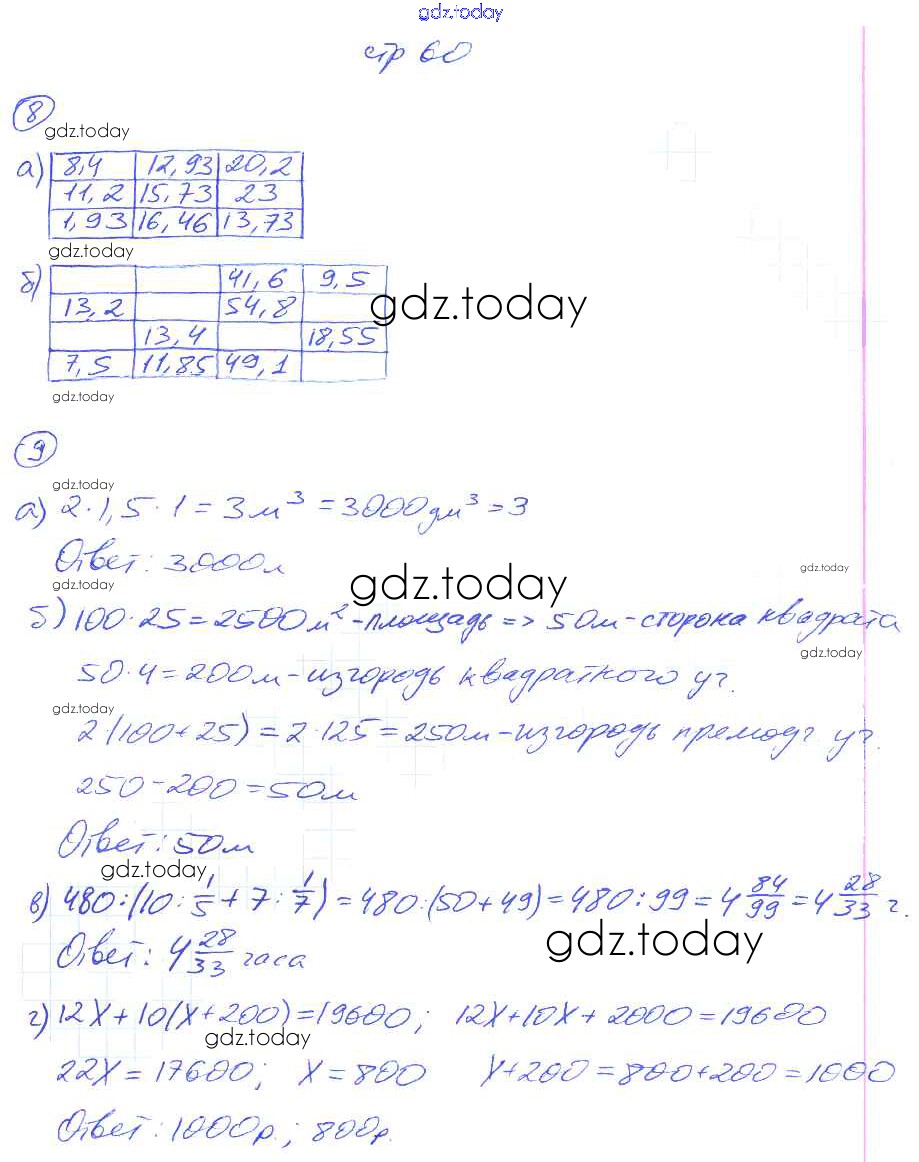 gdz.today
стр 60
8
gdz.today
а) 8,4 12,93 20,2
11,2 15,73 23
1,93 16,46 13,73
gdz.today
б) 41,6 9,5
13,2 54,8
gdz.today
13,4 18,55
7,5 11,85 49,1
gdz.today
9
gdz.today
а) 2·1,5·1=3м³=3000дм³=3
Ответ: 3000л
gdz.today
gdz.today
gdz.today
б) 100·25=2500м²-площадь=>50м-сторона квадрата
gdz.today
50·4=200м-изгородь квадратного уч.
gdz.today
2·(100+25)=2·125=250м-изгородь премоуг уч.
250-200=50м
Ответ: 50м
gdz.today
в) 480:(10:1/5+7:1/7)=480:(50+49)=480:99=4 84/99=4 28/33 ч.
Ответ: 4 28/33 часа
gdz.today
г) 12x+10(x+200)=19600; 12x+10x+2000=19600
gdz.today
22x=17600; x=800 x+200=800+200=1000
Ответ: 1000р.; 800р.